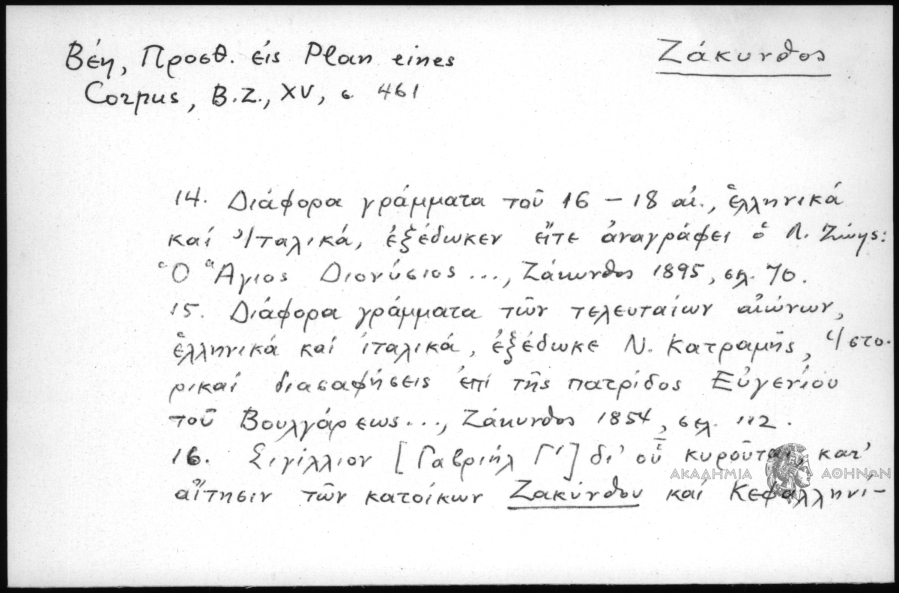 Βέη, Προσθ. εἰς Plan eines
Corpus, B.Z., XV, σ 461
Ζάκυνθος
14. Διάφορα γράμματα τοῦ 16 – 18 αἰ., ἑλληνικά
καί Ἰταλικά, ἐξέδωκεν εἴτε ἀναγράφει ὁ Λ. Ζώης:
Ὁ Ἅγιος Διονύσιος ..., Ζάκυνθος 1895, σελ. 70.
15. Διάφορα γράμματα τῶν τελευταίων αἰώνων,
ἑλληνικά καί ἰταλικά, ἐξέδωκε Ν. Κατραμῆς, Ἱστο-
ρικαί διασαφήσεις ἐπί τῆς πατρίδος Εὐγενίου
τοῦ Βουλγάρεως ..., Ζάκυνθος 1854, σελ. 112.
16. Σιγίλλιον [Γαβριήλ Γ'] δι' οὗ κυροῦται, κατ'
αἴτησιν τῶν κατοίκων Ζακύνθου καί Κεφαλληνί-
ΑΚΑΔΗΜΙΑ ΑΘΗΝΩΝ